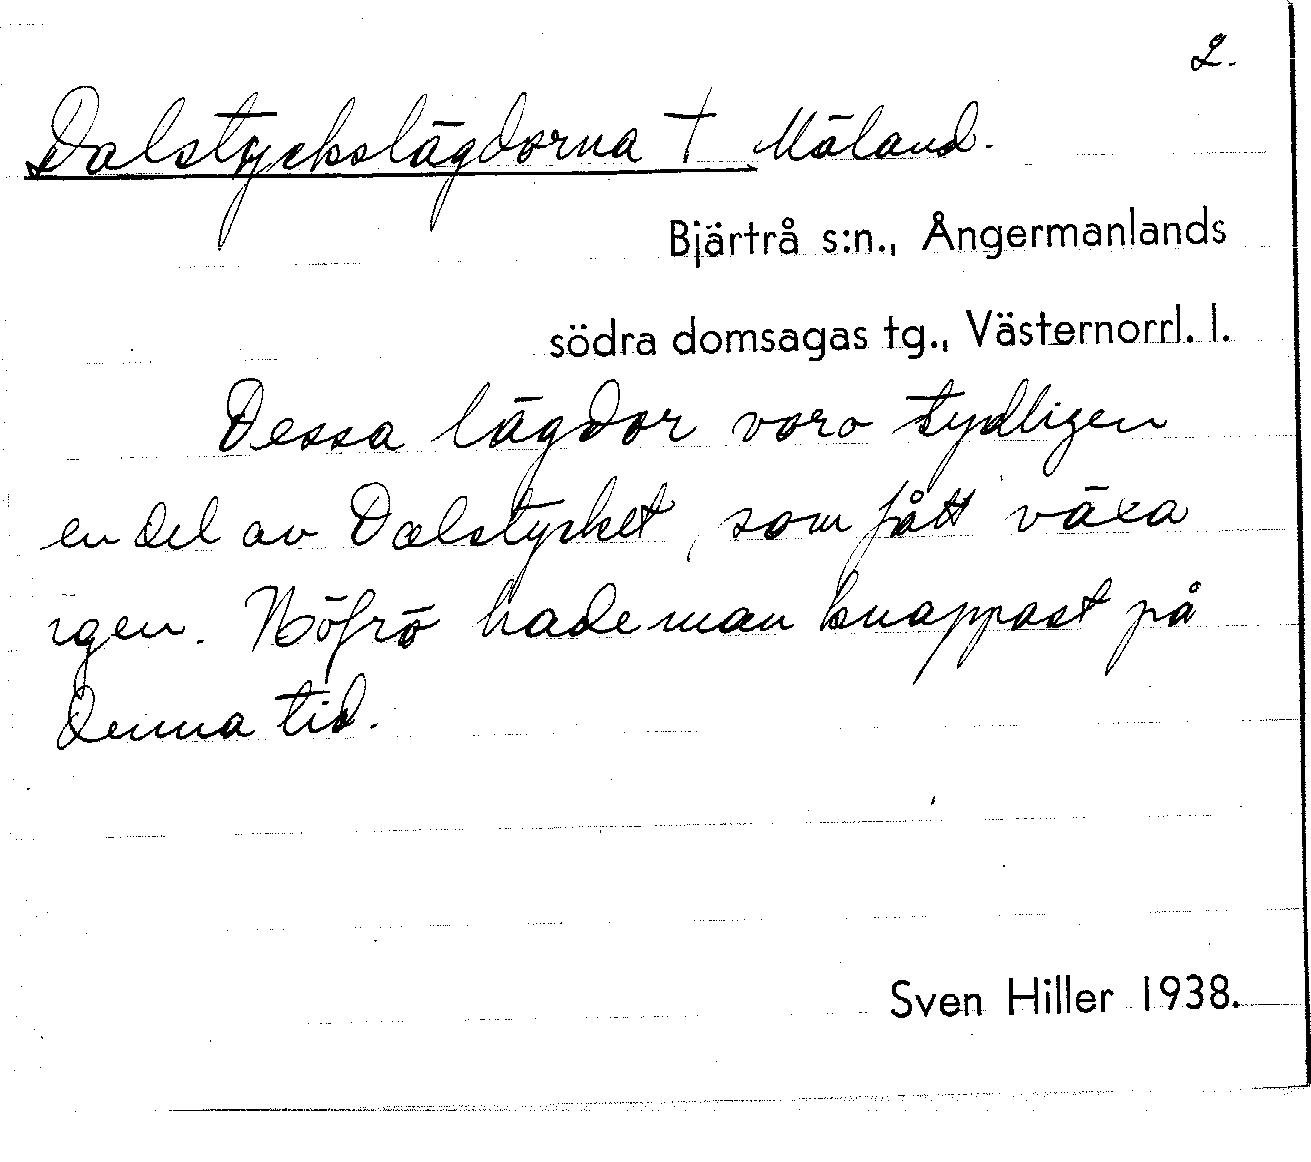 2.
Dalstyckslägdorna † Mäland.
Bjärtrå s:n., Ångermanlands
södra domsagas tg., Västernorrl. l.
Dessa lägdor voro tydligen
en del av Dalstycket, som fått växa
igen. Höfrö hade man knappast på
denna tid.
Sven Hiller 1938.